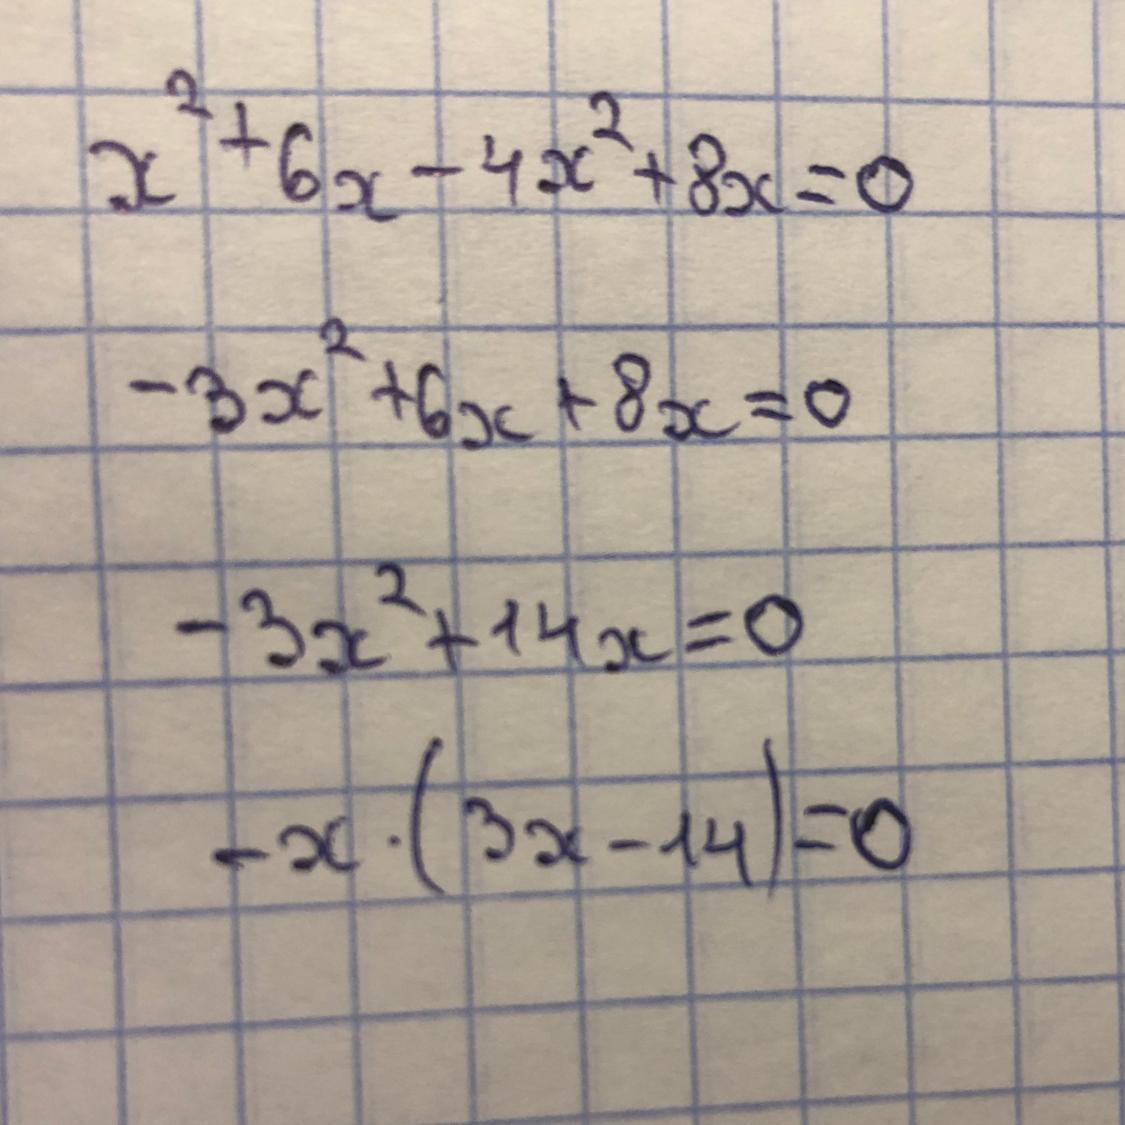 x²+6x-4x²+8x=0
-3x²+6x+8x=0
-3x²+14x=0
-x·(3x-14)=0